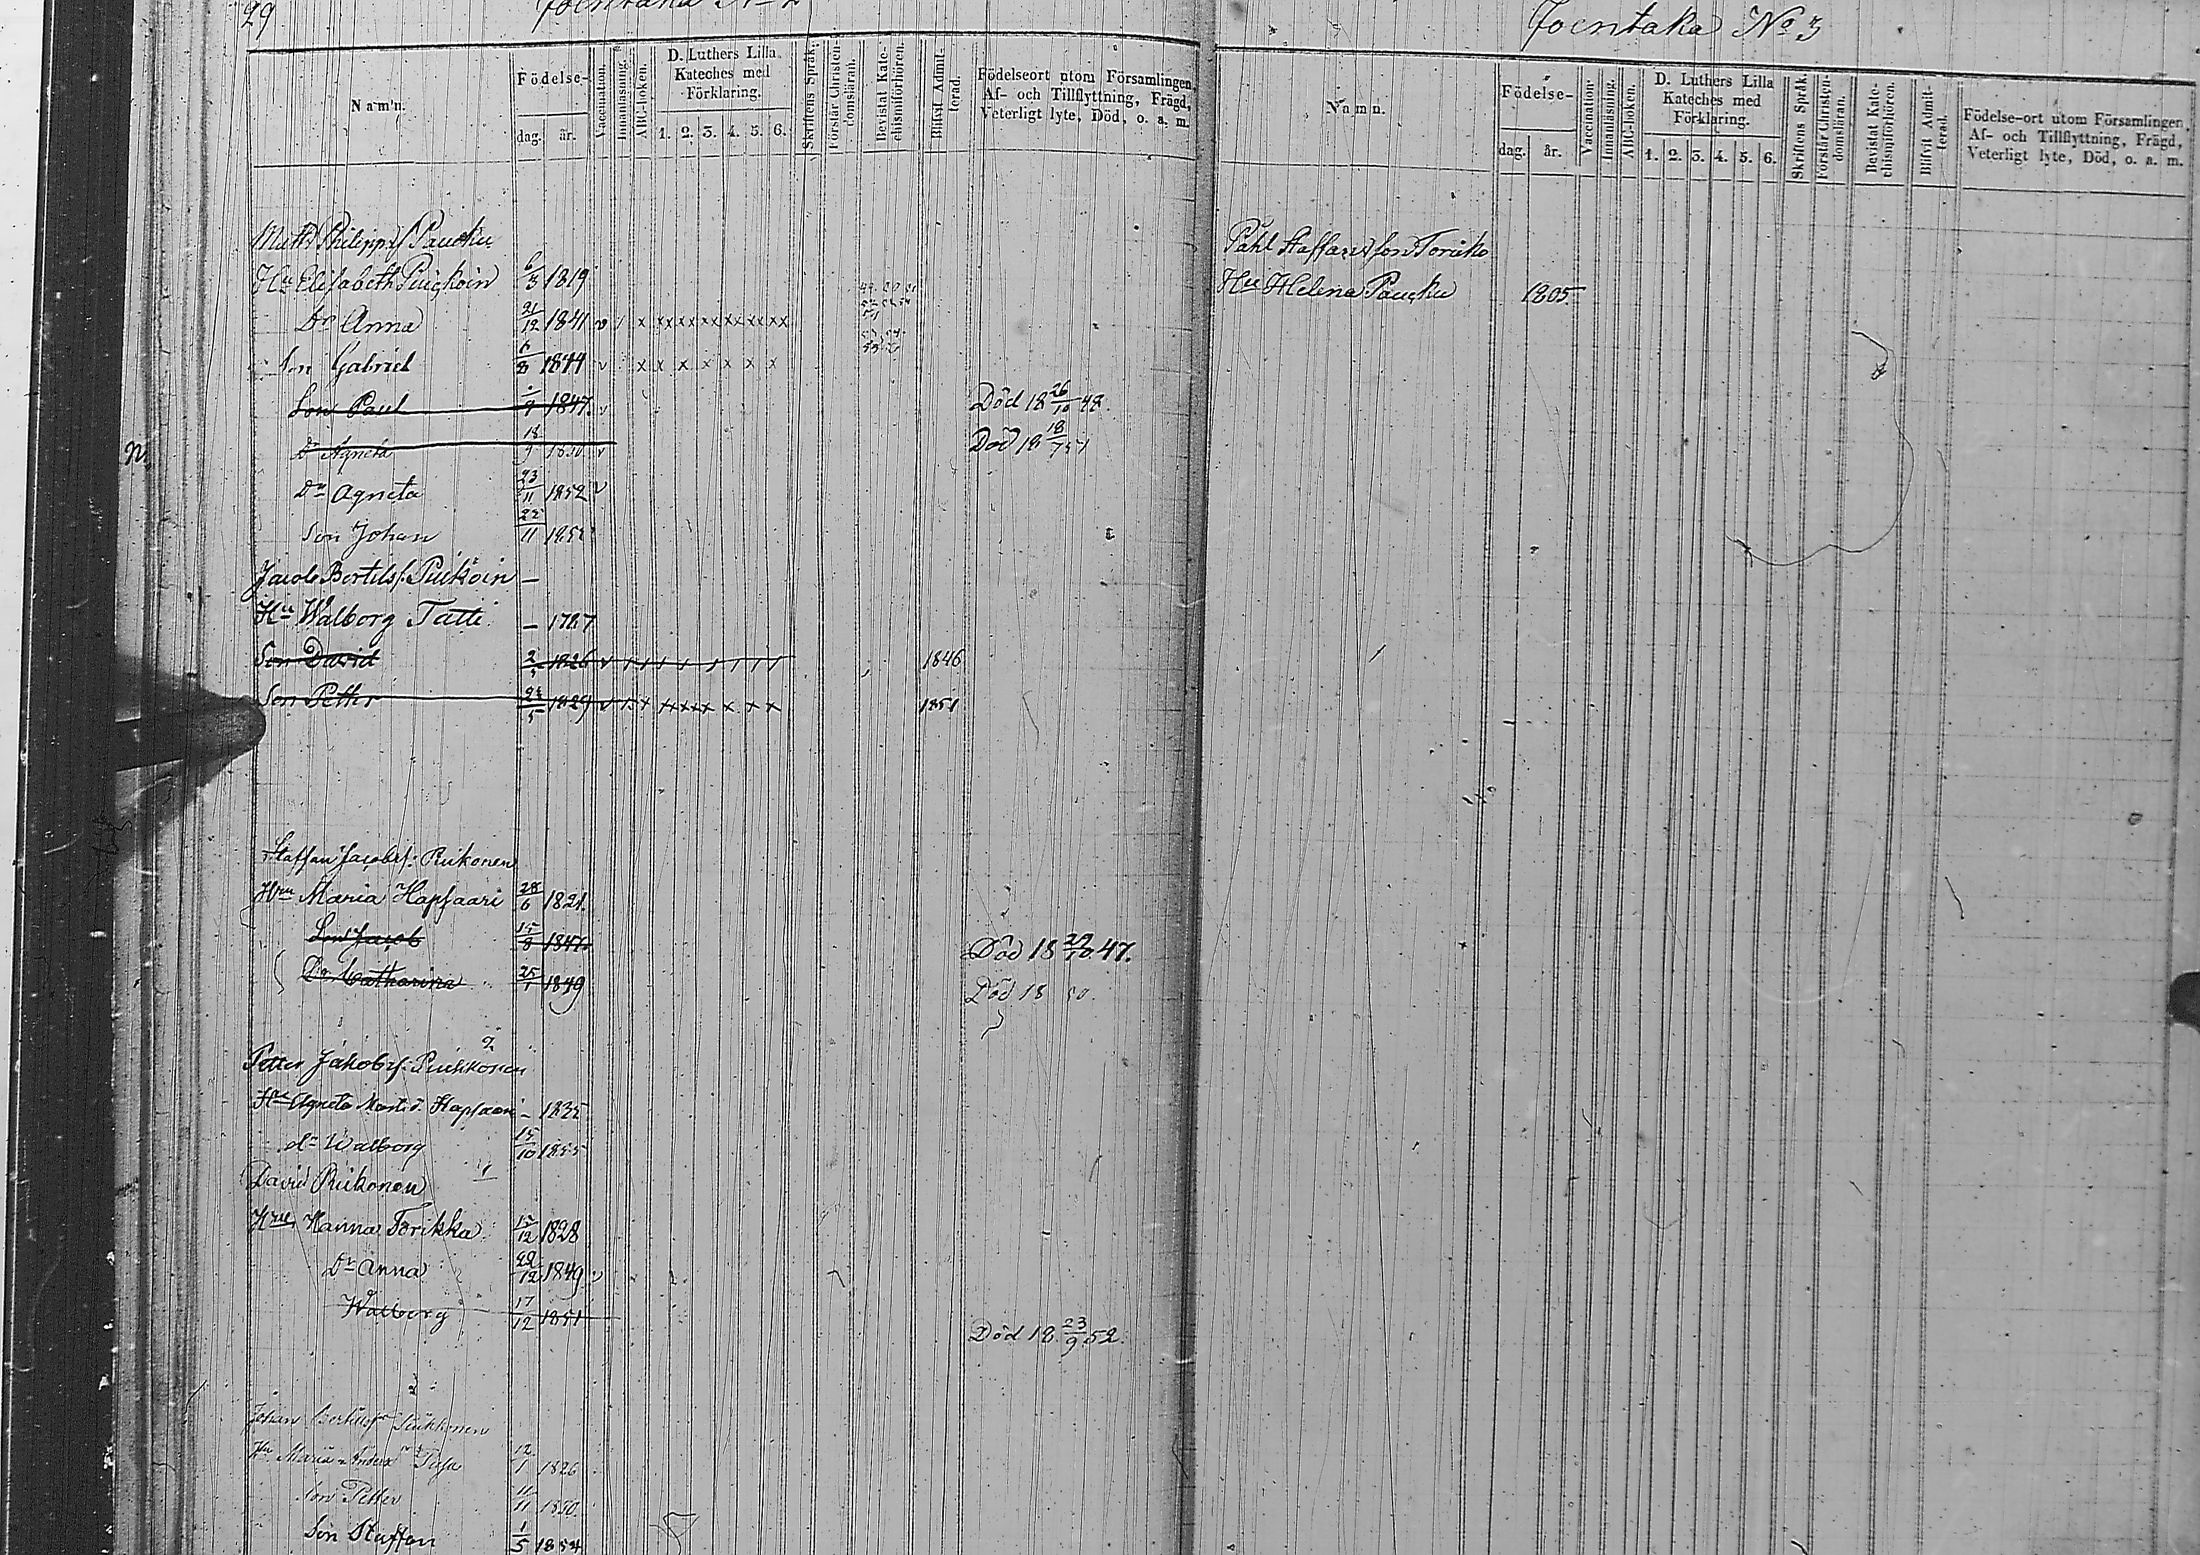 29
Joentaka No 2
Namn.
Födelse-
dag.
år.
Vaccination.
Innanläsning.
ABC-boken.
D. Luthers Lilla
Kateches med
Förklaring.
1. 2. 3. 4. 5. 6.
Skriftens Språk.
Förstår Christen-
domsläran.
Bevistat Kate-
chismiförhören.
Blifvit Admit-
terad.
Födelseort utom Församlingen,
Af- och Tillflyttning, Frägd,
Veterligt lyte, Död, o. a. m.
Matts Philippsf Paucku
Hu Elisabeth Puickoin 6/3 1819
Dr Anna 21/12 1841 v x x x x x x x x x x x
Son Gabriel 6/8 1844 v x x x x x x x
Son Paul 1847 v Död 18 26/10 48.
Dr Agneta 18/9 1850 v Död 18 18/7 51
Dr Agneta 23/11 1852 v
Son Johan 22/11 1855
Jacob Bertilsf. Puikoin –
Hu Walborg Tatti – 1787
Son David 2/5 1826 v 1846
Son Petter 24/5 1829 v x x x x x x x x x 1851
Staffan Jacobsf. Puikonen
Hru Maria Hapsaari 28/6 1821.
Son Jacob 15/8 1847. Död 18 22/10 47.
Dr Catharina 25/1 1849 Död 18 50.
2
Petter Jakobsf. Puikkonen
Hu Agneta Mart.d. Hapsaari – 1835
dr Walborg 15/10 1855
1
David Puikonen
Hru Hanna Torikka 15/12 1828
Dr Anna 22/12 1849 v
Walborg 17/12 1851
Död 18 23/9 52.
2
Johan Bertilsson Puikkonen
Hu Maria Anders 12/1 1826
Son Petter 1850.
Son Staffan 1/5 1854
Joentaka No 3
Namn.
Födelse-
dag.
år.
Vaccination.
Innanläsning.
ABC-boken.
D. Luthers Lilla
Kateches med
Förklaring.
1. 2. 3. 4. 5. 6.
Skriftens Språk.
Förstår Christen-
domsläran.
Bevistat Kate-
chismiförhören.
Blifvit Admit-
terad.
Födelse-ort utom Församlingen,
Af- och Tillflyttning, Frägd,
Veterligt lyte, Död, o. a. m.
Påhl Staffansson Toricko
Hu Helena Paucku 1805